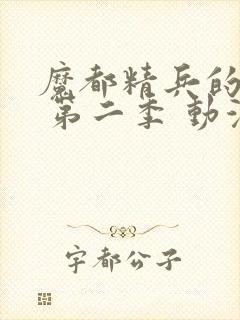 魔都精兵的
第二季 動漫
宇都公子